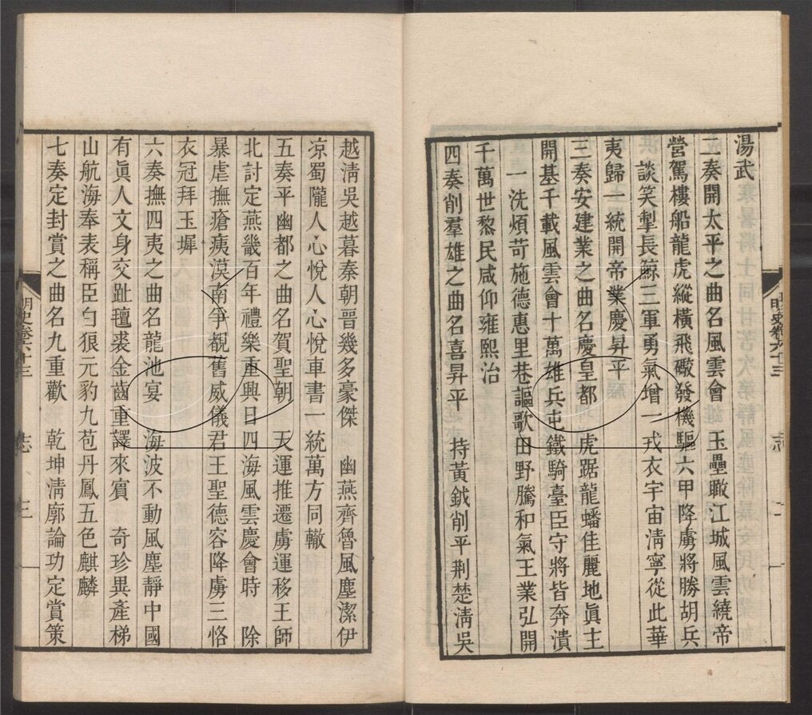 湯武
二奏開太平之曲名風雲會　玉壘瞰江城風雲繞帝
營駕樓船龍虎縱橫飛礮發機驅六甲降虜將勝胡兵
談笑掣長鯨三軍勇氣增一戎衣宇宙淸寧從此華
夷歸一統開帝業慶昇平
三奏安建業之曲名慶皇都　虎踞龍蟠佳麗地眞主
開基千載風雲會十萬雄兵屯鐵騎臺臣守將皆奔潰
一洗煩苛施德惠里巷謳歌田野騰和氣王業弘開
千萬世黎民咸仰雍熙治
四奏削羣雄之曲名喜昇平　持黃鉞削平荆楚淸吳
越淸吳越暮秦朝晉幾多豪傑　幽燕齊魯風塵潔伊
凉蜀隴人心悅人心悅車書一統萬方同轍
五奏平幽都之曲名賀聖朝　天運推遷虜運移王師
北討定燕畿百年禮樂重興日四海風雲慶會時　除
暴虐撫瘡痍漠南爭覩舊威儀君王聖德容降虜三恪
衣冠拜玉墀
六奏撫四夷之曲名龍池宴　海波不動風塵靜中國
有眞人文身交趾氊裘金齒重譯來賓　奇珍異產梯
山航海奉表稱臣白狼元豹九苞丹鳳五色麒麟
七奏定封賞之曲名九重歡　乾坤淸廓論功定賞策
明史卷六十三　志　三